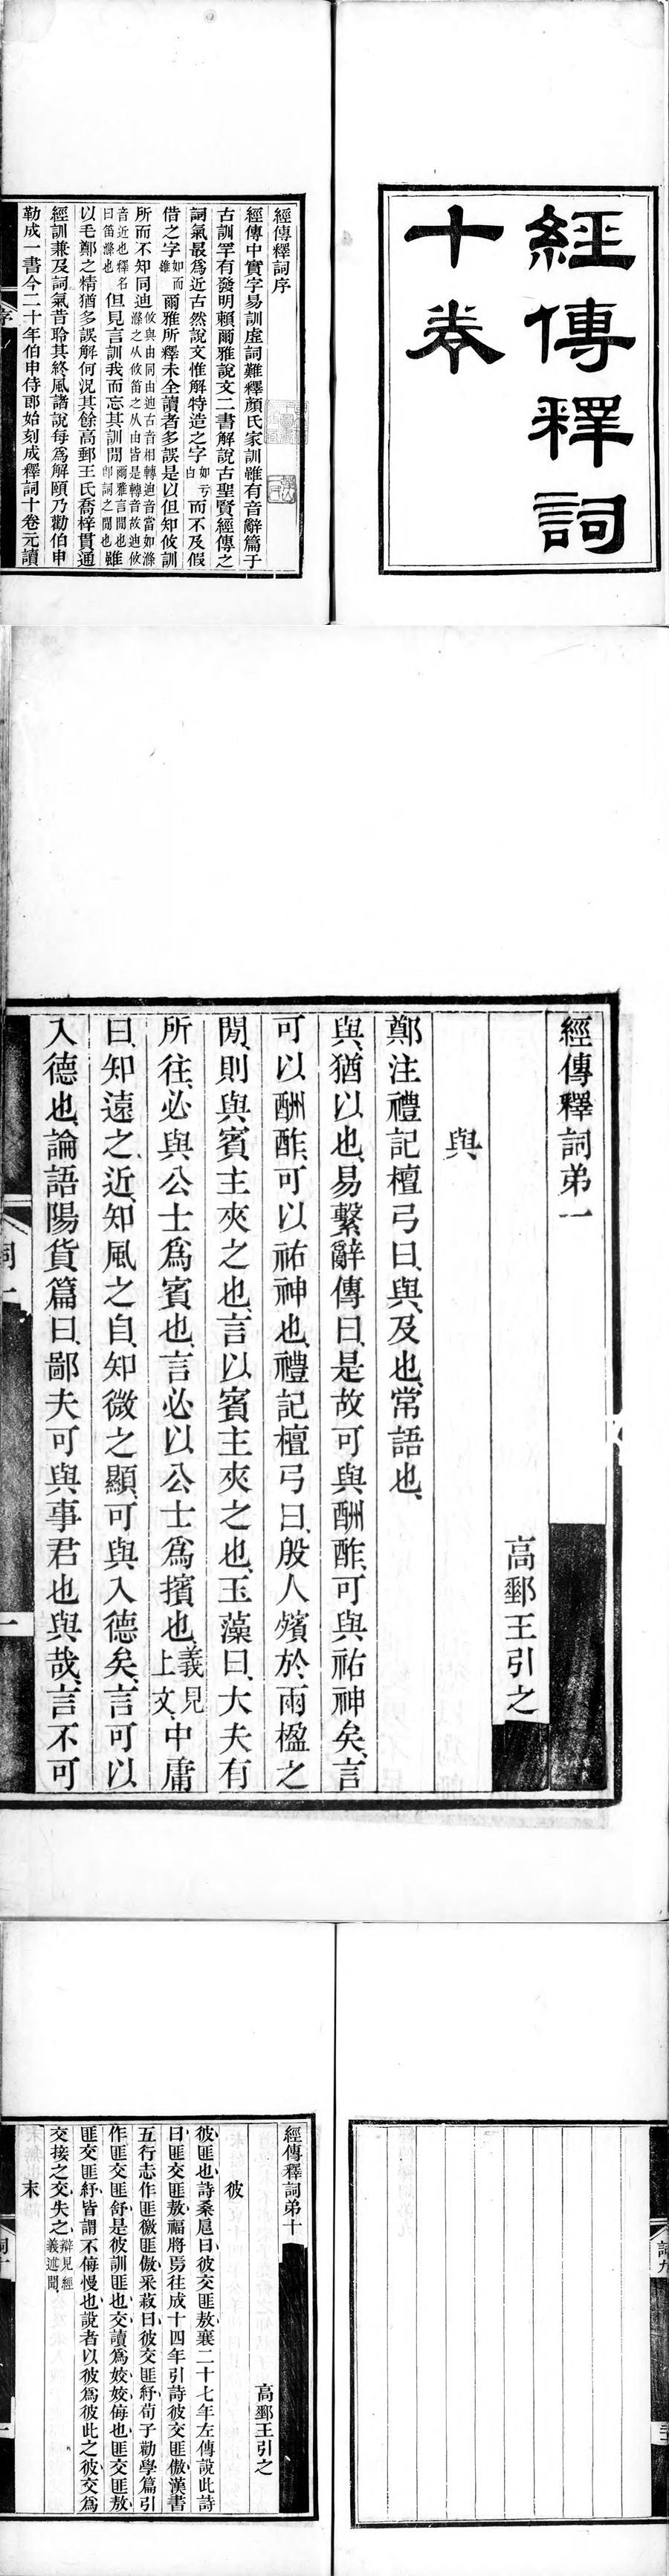 經傳釋詞
十卷
經傳釋詞序
經傳中實字易訓虛詞難釋顏氏家訓雖有音辭篇于
古訓罕有發明賴爾雅說文二書解說古聖賢經傳之
詞氣最爲近古然說文惟解特造之字如亏白而不及假
借之字如而雖爾雅所釋未全讀者多誤是以但知攸訓
所而不知同迪攸與由同由迪古音相轉迪音當如滌滌之从攸笛之从由皆是轉音故迪攸
音近也釋名曰笛滌也但見言訓我而忘其訓閒爾雅言閒也卽詞之閒也雖
以毛鄭之精猶多誤解何況其餘高郵王氏喬梓貫通
經訓兼及詞氣昔聆其終風諸說每爲解頤乃勸伯申
勒成一書今二十年伯申侍郎始刻成釋詞十卷元讀
序
經傳釋詞弟一
高郵王引之
與
鄭注禮記檀弓曰、與、及也、常語也、
與、猶以也、易繫辭傳曰、是故可與酬酢、可與祐神矣、言
可以酬酢、可以祐神也、禮記檀弓曰、殷人殯於兩楹之
閒、則與賓主夾之也、言以賓主夾之也、玉藻曰、大夫有
所往、必與公士爲賓也、言必以公士爲擯也、義見上文、中庸
曰、知遠之近、知風之自、知微之顯、可與入德矣、言可以
入德也、論語陽貨篇曰、鄙夫可與事君也與哉、言不可
詞一
一
詞九
經傳釋詞弟十
高郵王引之
彼
彼匪也詩桑扈曰彼交匪敖襄二十七年左傳說此詩
曰匪交匪敖福將焉往成十四年引詩彼交匪傲漢書
五行志作匪儌匪傲采菽曰彼交匪紓荀子勸學篇引
作匪交匪舒是彼訓匪也交讀爲姣姣侮也匪交匪敖
匪交匪紓皆謂不侮慢也說者以彼爲彼此之彼交爲
交接之交失之辯見經義述聞
末
詞十
一